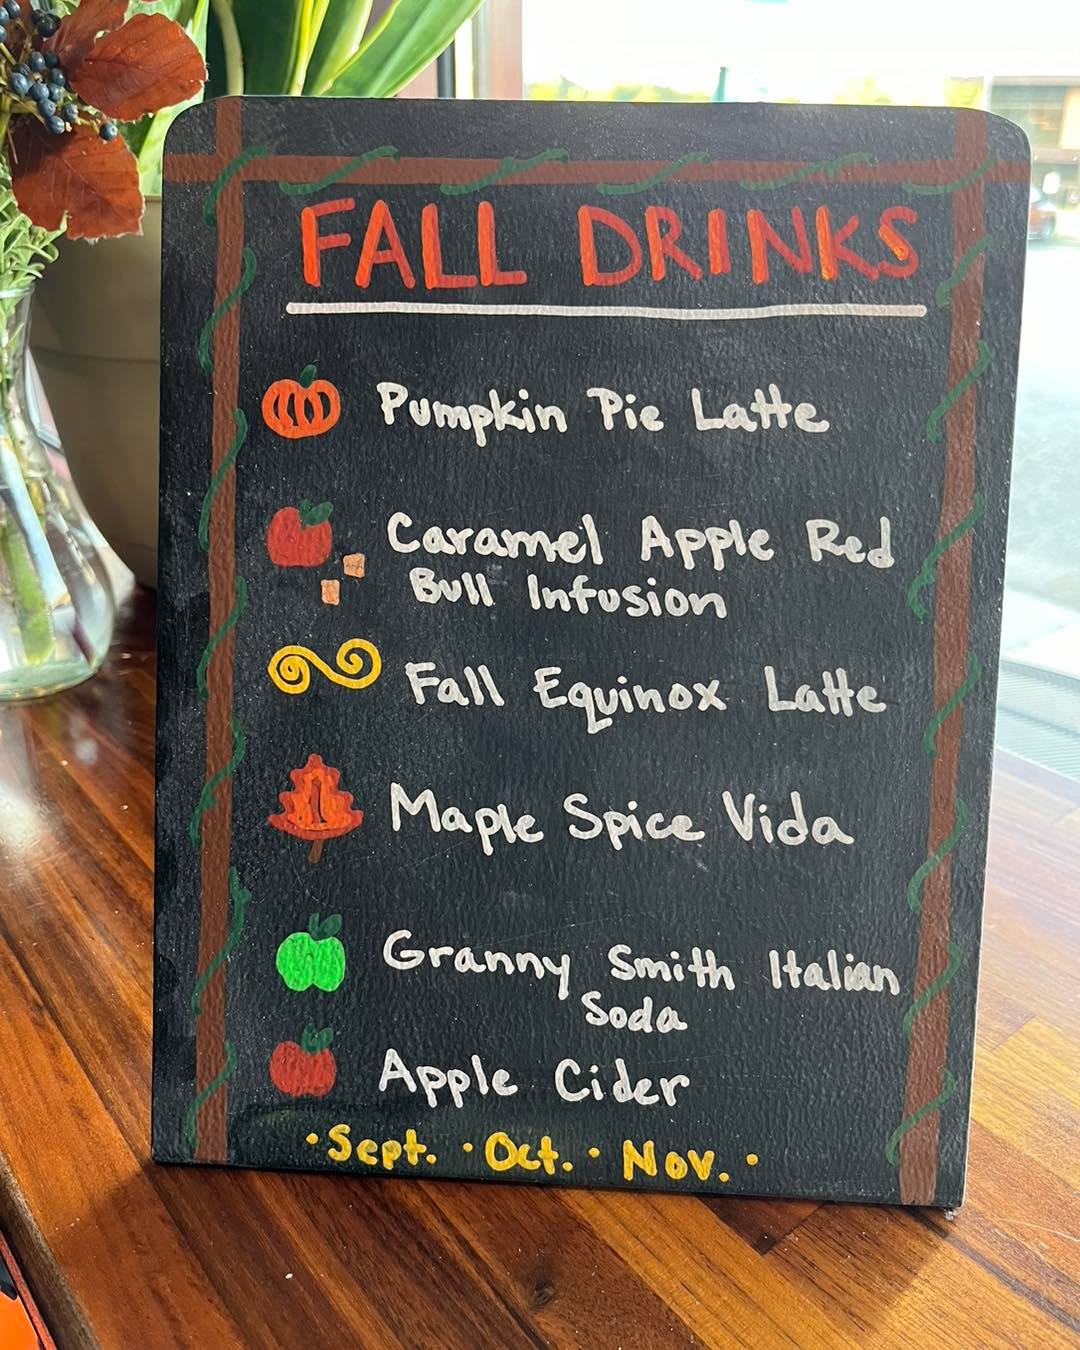 FALL DRINKS
Pumpkin Pie Latte
Caramel Apple Red
Bull Infusion
Fall Equinox Latte
Maple Spice Vida
Granny Smith Italian
Soda
Apple Cider
·Sept. ·Oct. · Nov. ·